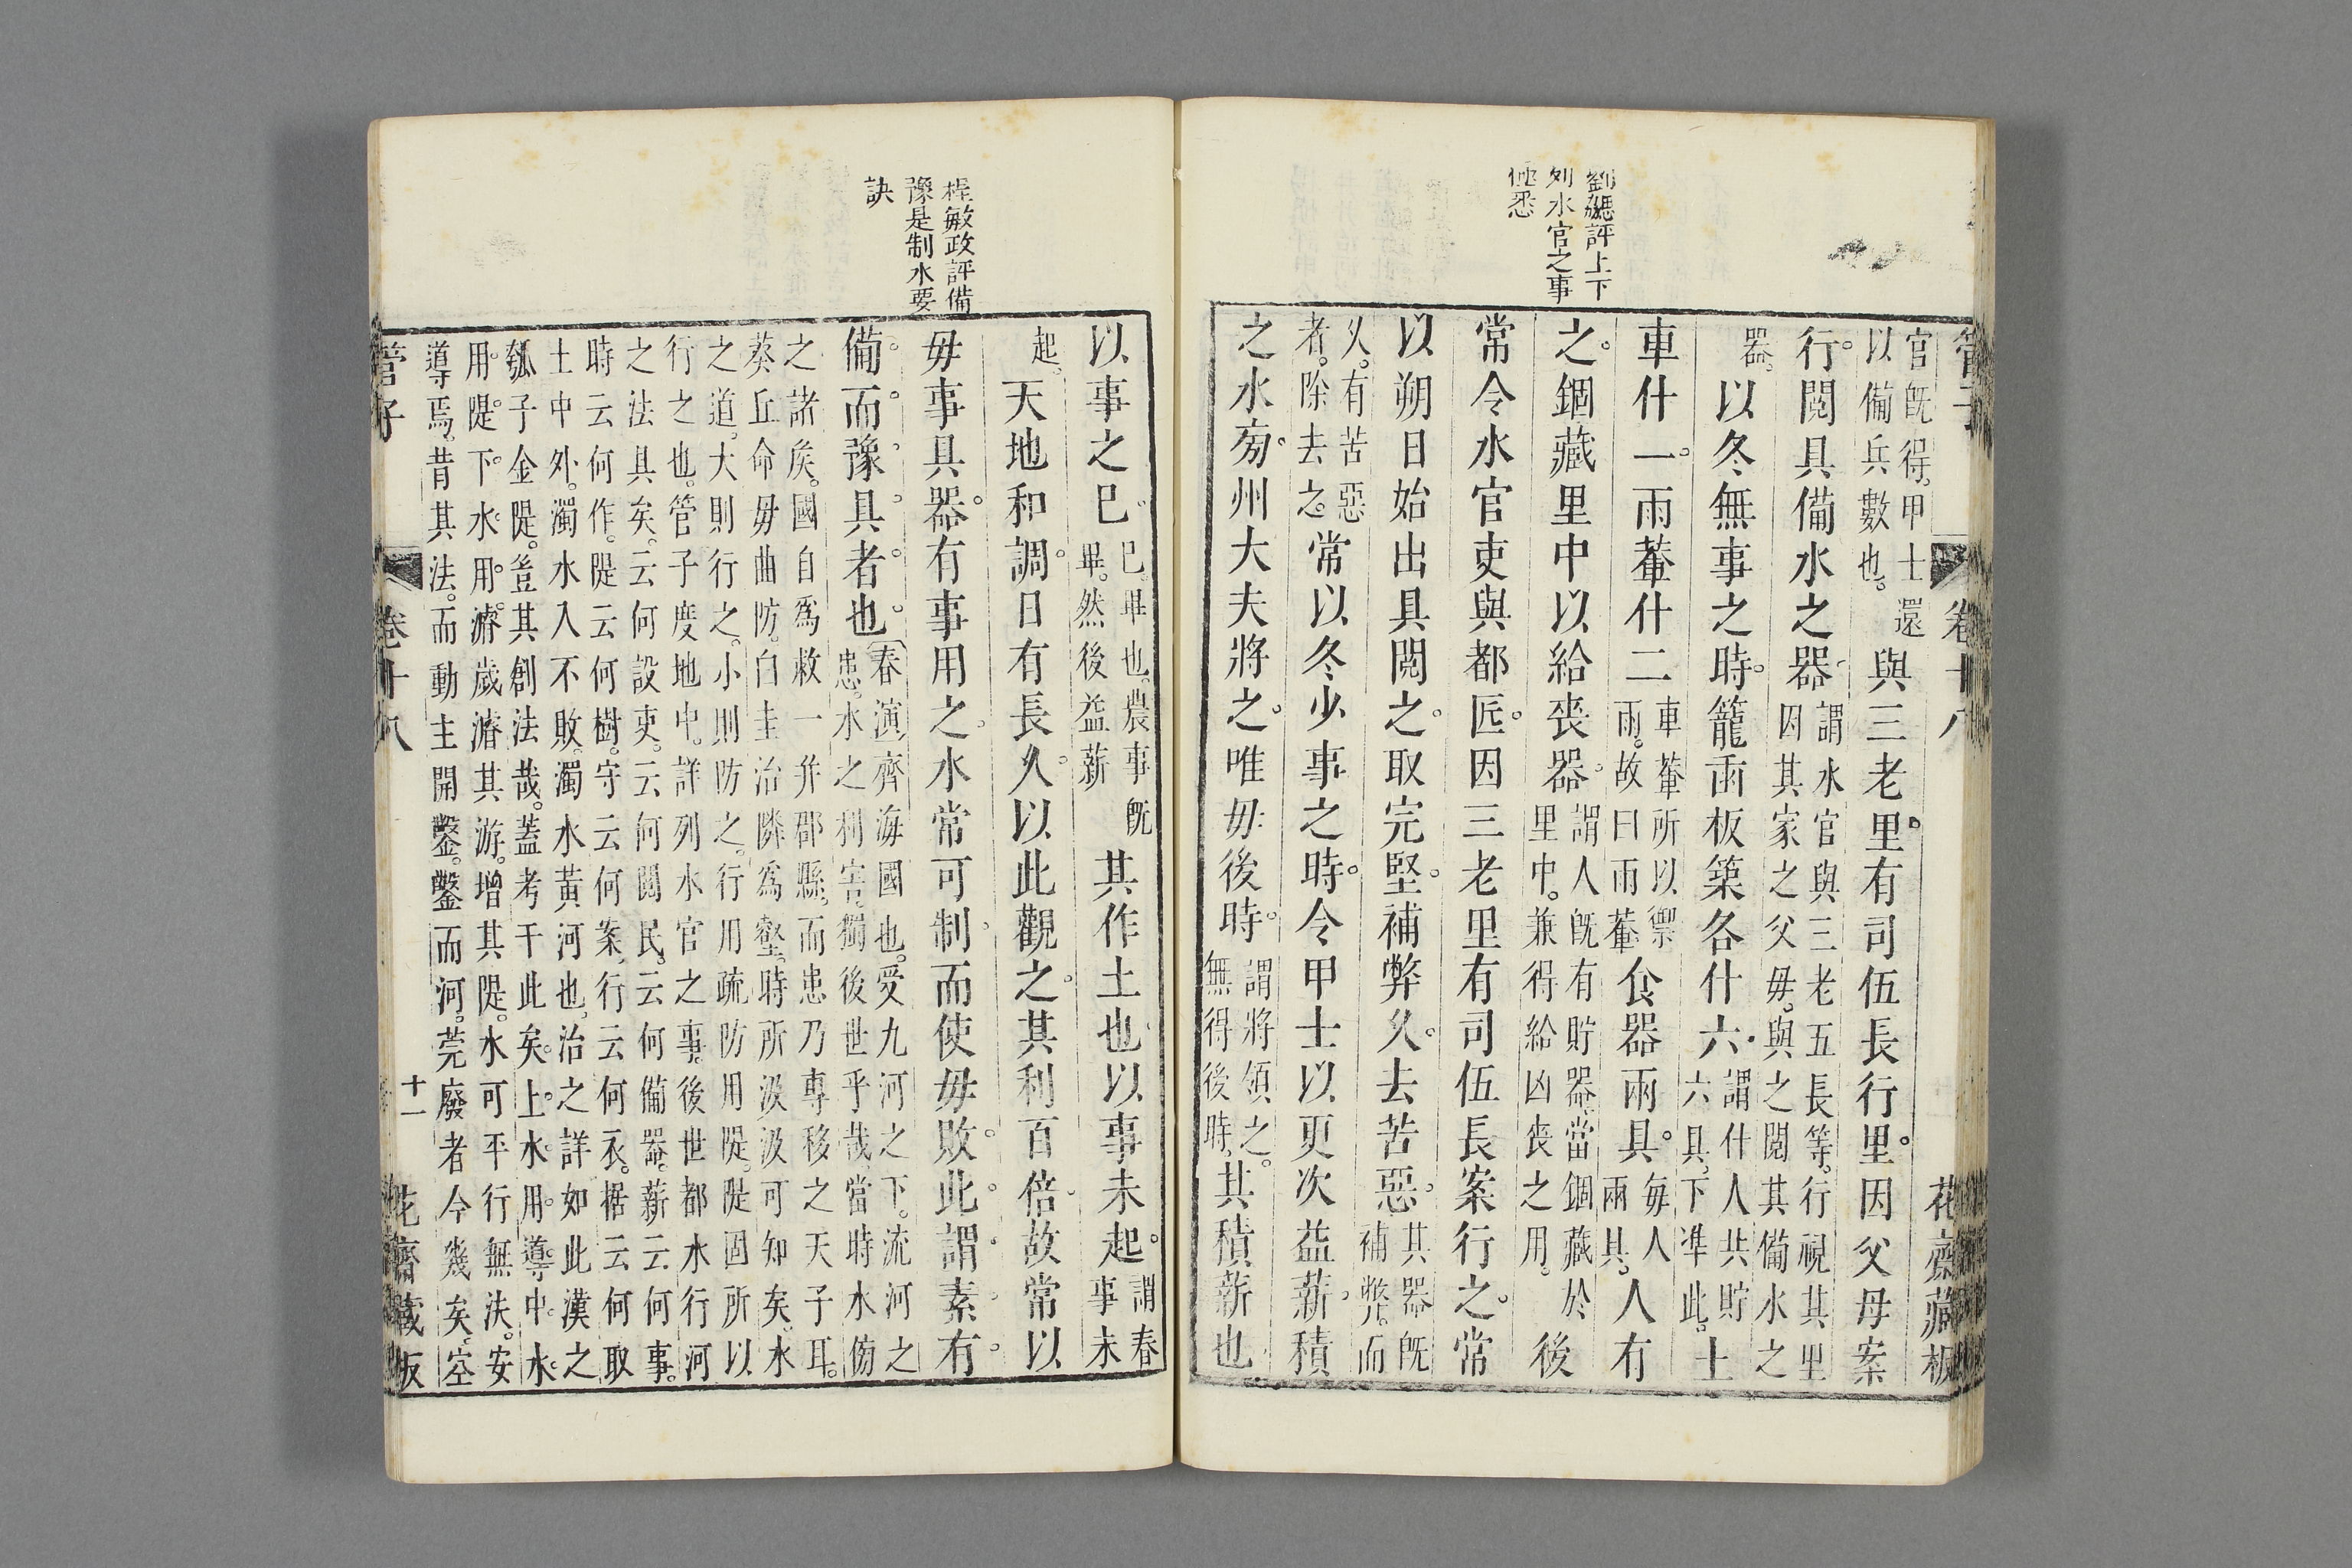 劉勰評上下
列水官之事
極悉
管子
卷十八
花齋藏板
官既得甲士還
以備兵數也
與三老里有司伍長行里因父母案
行閱具備水之器
謂水官與三老五長等行視其里
因其家之父母與之閱其備水之
器
以冬無事之時籠臿板築各什六
謂什人共貯
六具下準此
土
車什一雨軬什二
車軬所以禦
雨故曰雨軬
食器兩具
每人
兩具
人有
之錮藏里中以給喪器
謂人既有貯器當錮藏於
里中兼得給凶喪之用
後
常令水官吏與都匠因三老里有司伍長案行之常
以朔日始出具閱之取完堅補弊久去苦惡
其器既
補弊而
久有苦惡
者除去之
常以冬少事之時令甲士以更次益薪積
之水旁州大夫將之唯毋後時
謂將領之
無得後時
其積薪也
程敏政評備
豫是制水要
訣
以事之已
已畢也農事既
畢然後益薪
其作土也以事未起
謂春
事未
起
天地和調日有長久以此觀之其利百倍故常以
毋事具器有事用之水常可制而使毋敗此謂素有
備而豫具者也
春演
齊海國也受九河之下流河之
患水之利害獨後世乎哉當時水傷
之諸侯國自爲救一并郡縣而患乃專移之天子耳
葵丘命毋曲防白圭治隣爲壑時所汲汲可知矣水
之道大則行之小則防之行用疏防用隄隄固所以
行之也管子度地中詳列水官之事後世都水行河
之法具矣云何設吏云何閱民云何備器薪云何事
時云何作隄云何樹守云何案行云何衣椐云何取
土中外濁水入不敗濁水黃河也治之詳如此漢之
瓠子金隄豈其創法哉蓋考干此矣上水用導中水
用隄下水用濬歲濬其游增其隄水可平行無決安
導焉昔其法而動主開鑿鑿而河荒廢者今幾矣空
管子
卷十八
十一
花齋藏板